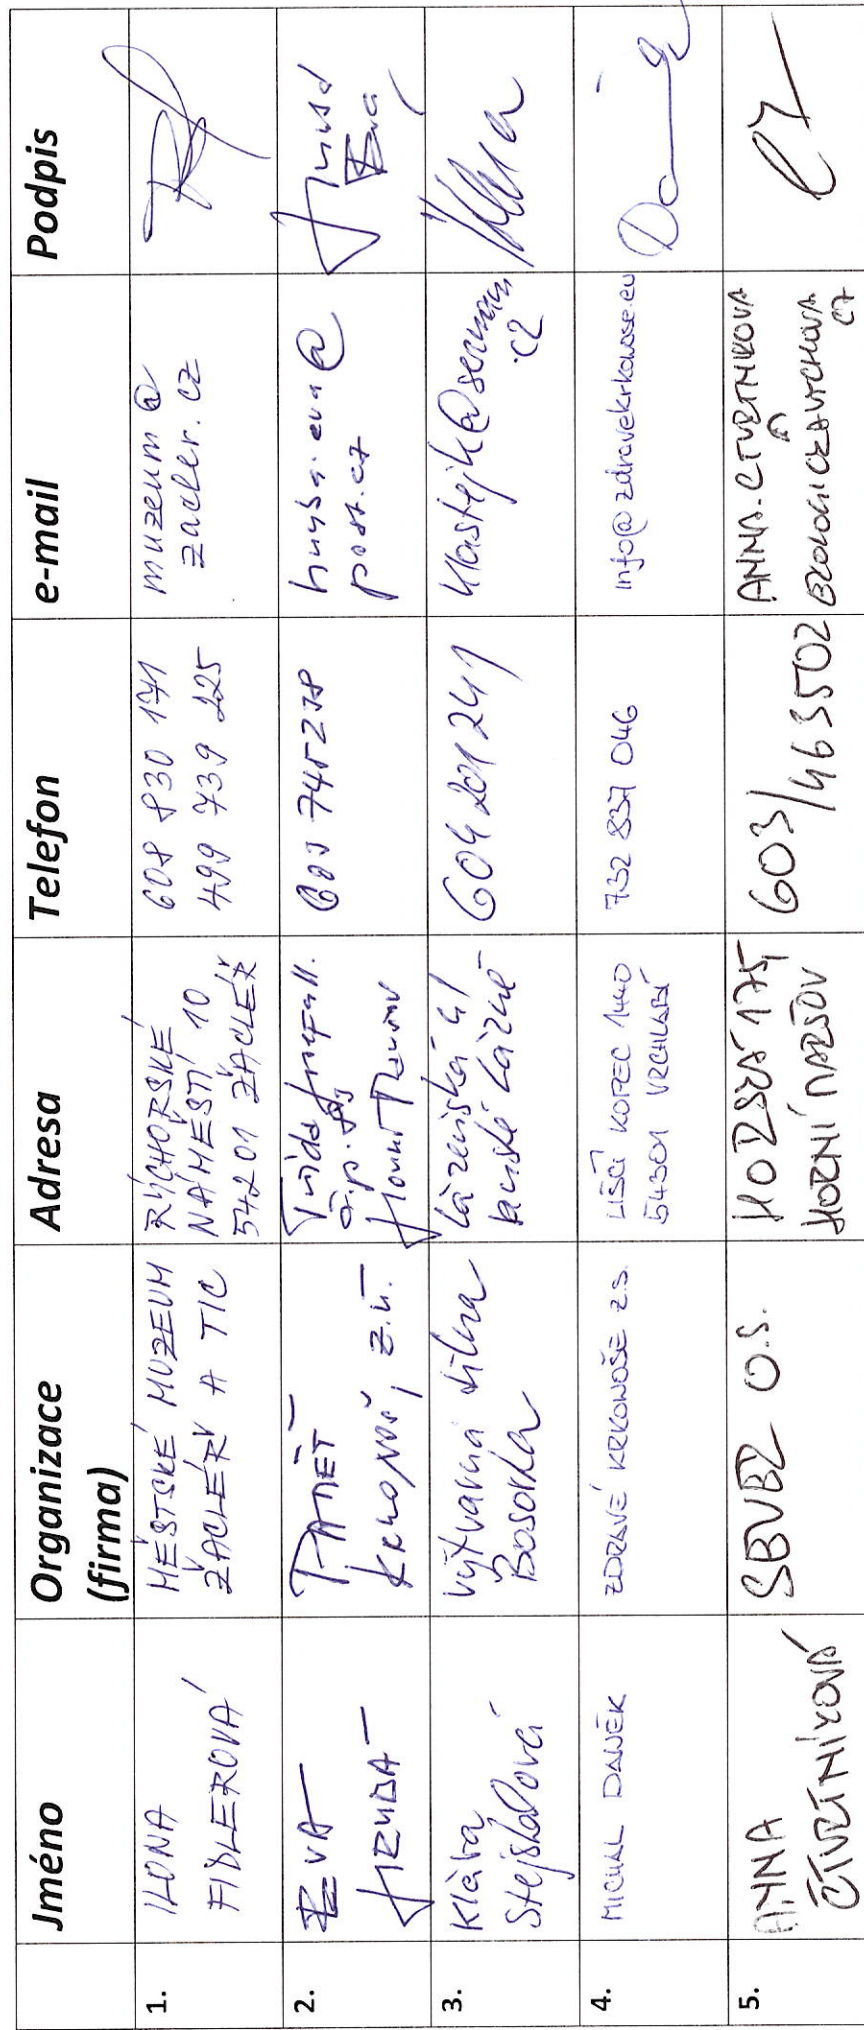 Jméno
Organizace
(firma)
Adresa
Telefon
e-mail
Podpis
1.
ILONA
FIDLEROVÁ
MĚSTSKÉ MUZEUM
ŽACLÉŘ A TIC
RÝCHORSKÉ
NÁMĚSTÍ 10
54201 ŽACLÉŘ
608 830 171
499 739 225
muzeum@
zacler.cz
2.
EVA
HRUBÁ
PAMĚŤ
KRKONOŠ, z.ú.
Třída
č.p.
Horní
745278
hruba.eva@
post.cz
Hrubá
Eva
3.
Klára
Stejskalová
výtvarná dílna
Bosorka
Lázeňská
Janské Lázně
604 201 241
klastejk@seznam
.cz
4.
MICHAL DANĚK
ZDRAVÉ KRKONOŠE z.s.
LIŠČÍ KOPEC 1440
54301 VRCHLABÍ
732 837 046
info@zdravekrkonose.eu
5.
ANNA
ČTVRTNÍKOVÁ
SEVER O.S.
HORSKÁ 175,
HORNÍ MARŠOV
603/463502
ANNA.CTVRTNIKOVA
@
EKOLOGICKAVYCHOVA
CZ